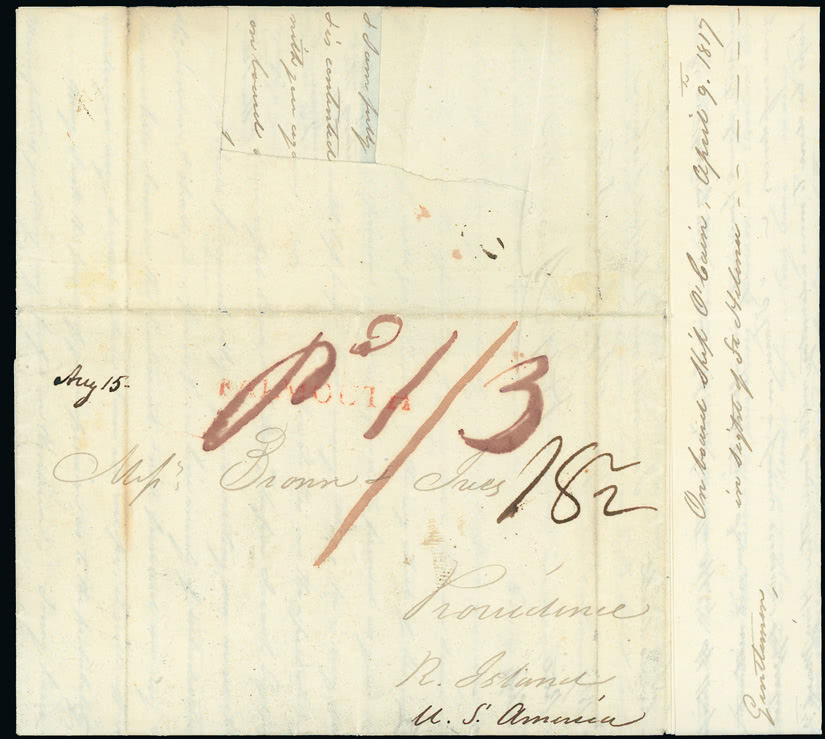 & I am fully
& is contented
with your
on board
Aug 15-
Pd 1/3
FALMOUTH
Messrs. Brown & Ives
18½
Providence
R. Island
U. S. America
On board Ship O'Cain, April 9. 1817
in sight of St Helena - - - - - -
Gentlemen